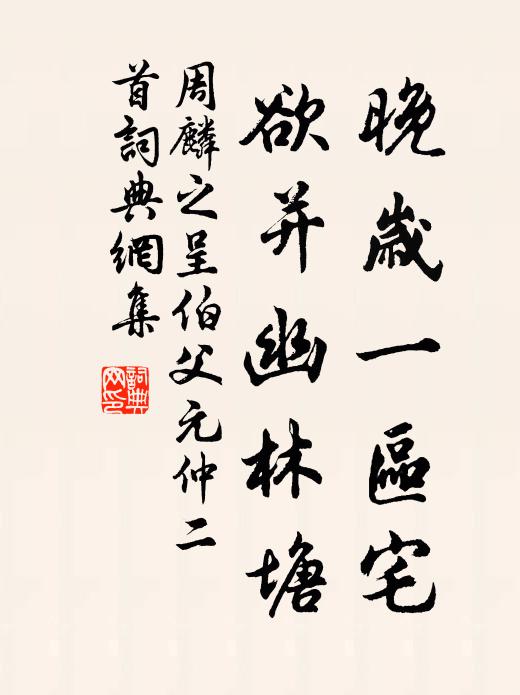 晚歲一區宅
欲并幽林塘
周麟之呈伯父元仲二
首詞典網集
詞典
网印